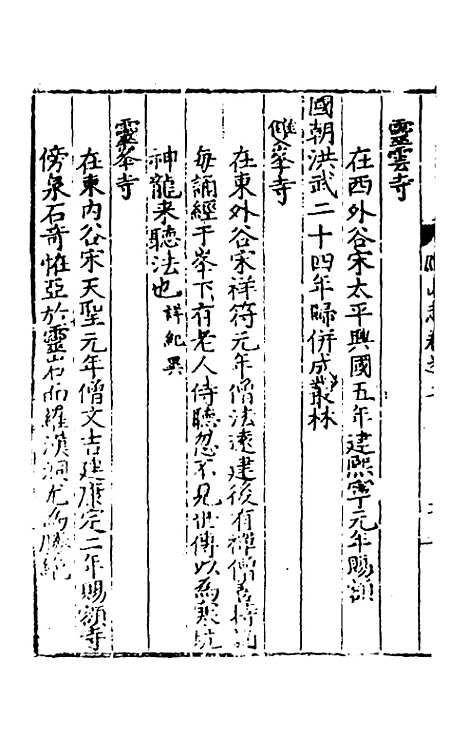 靈雲寺
在西外谷宋太平興國五年建熙寧元年賜額
國朝洪武二十四年歸併成叢林
峯寺
在東外谷宋祥符元年僧法遠建後有禪僧善持詞
每誦經于峯下有老人侍聽忽不見世傳以為
神龍来聽法也詳紀異
靈峯寺
在東内谷宋天聖元年僧文吉建康定二年賜額寺
傍泉石奇恠亞於靈岩而羅漢洞尤為勝絶